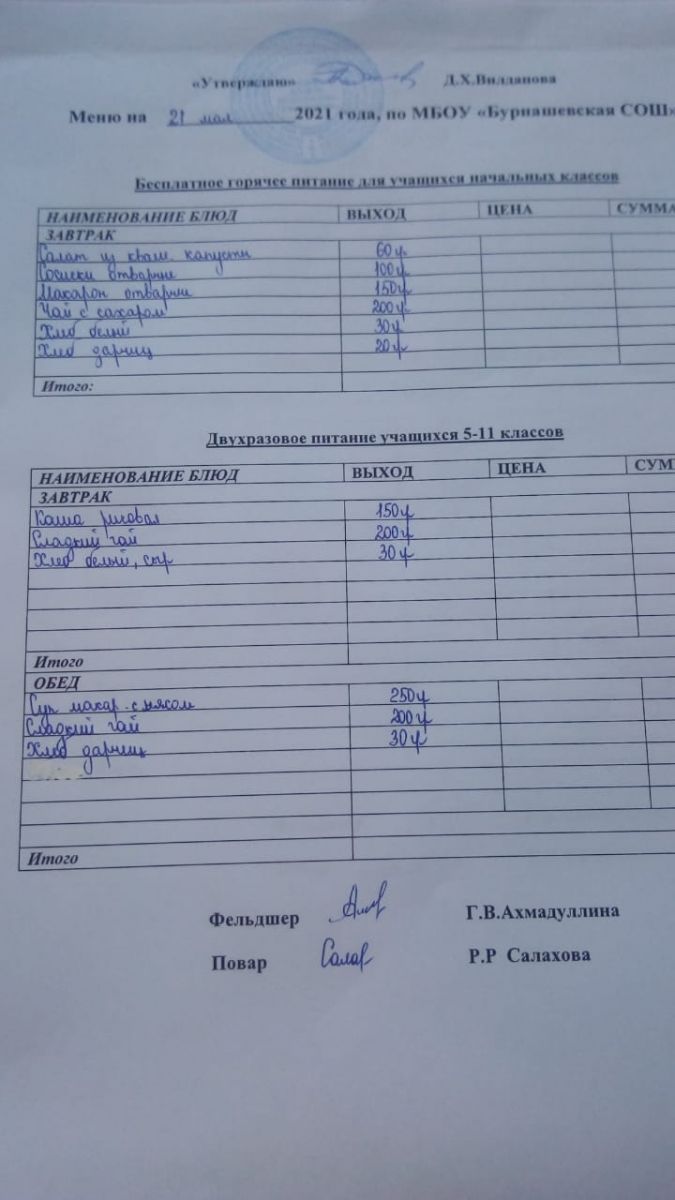 «Утверждаю» Д.Х.Вилданова
Меню на 21 мая 2021 года, по МБОУ «Бурнашевская СОШ»
Бесплатное горячее питание для учащихся начальных классов
НАИМЕНОВАНИЕ БЛЮД ВЫХОД ЦЕНА СУММА
ЗАВТРАК
Салат из кваш капусты 60г
Сосиски отварные 100г
Макарон отварны 150г
Чай с сахаром 200г
Хлеб белый 30г
Хлеб дарниц 20г
Итого:
Двухразовое питание учащихся 5-11 классов
НАИМЕНОВАНИЕ БЛЮД ВЫХОД ЦЕНА СУММ
ЗАВТРАК
Каша рисовая 150г
Сладкий чай 200г
Хлеб белый, сыр 30г
Итого
ОБЕД
Суп макар. с мясом 250г
Сладкий чай 200г
Хлеб дарниц 30г
Итого
Фельдшер Г.В.Ахмадуллина
Повар Салах Р.Р Салахова